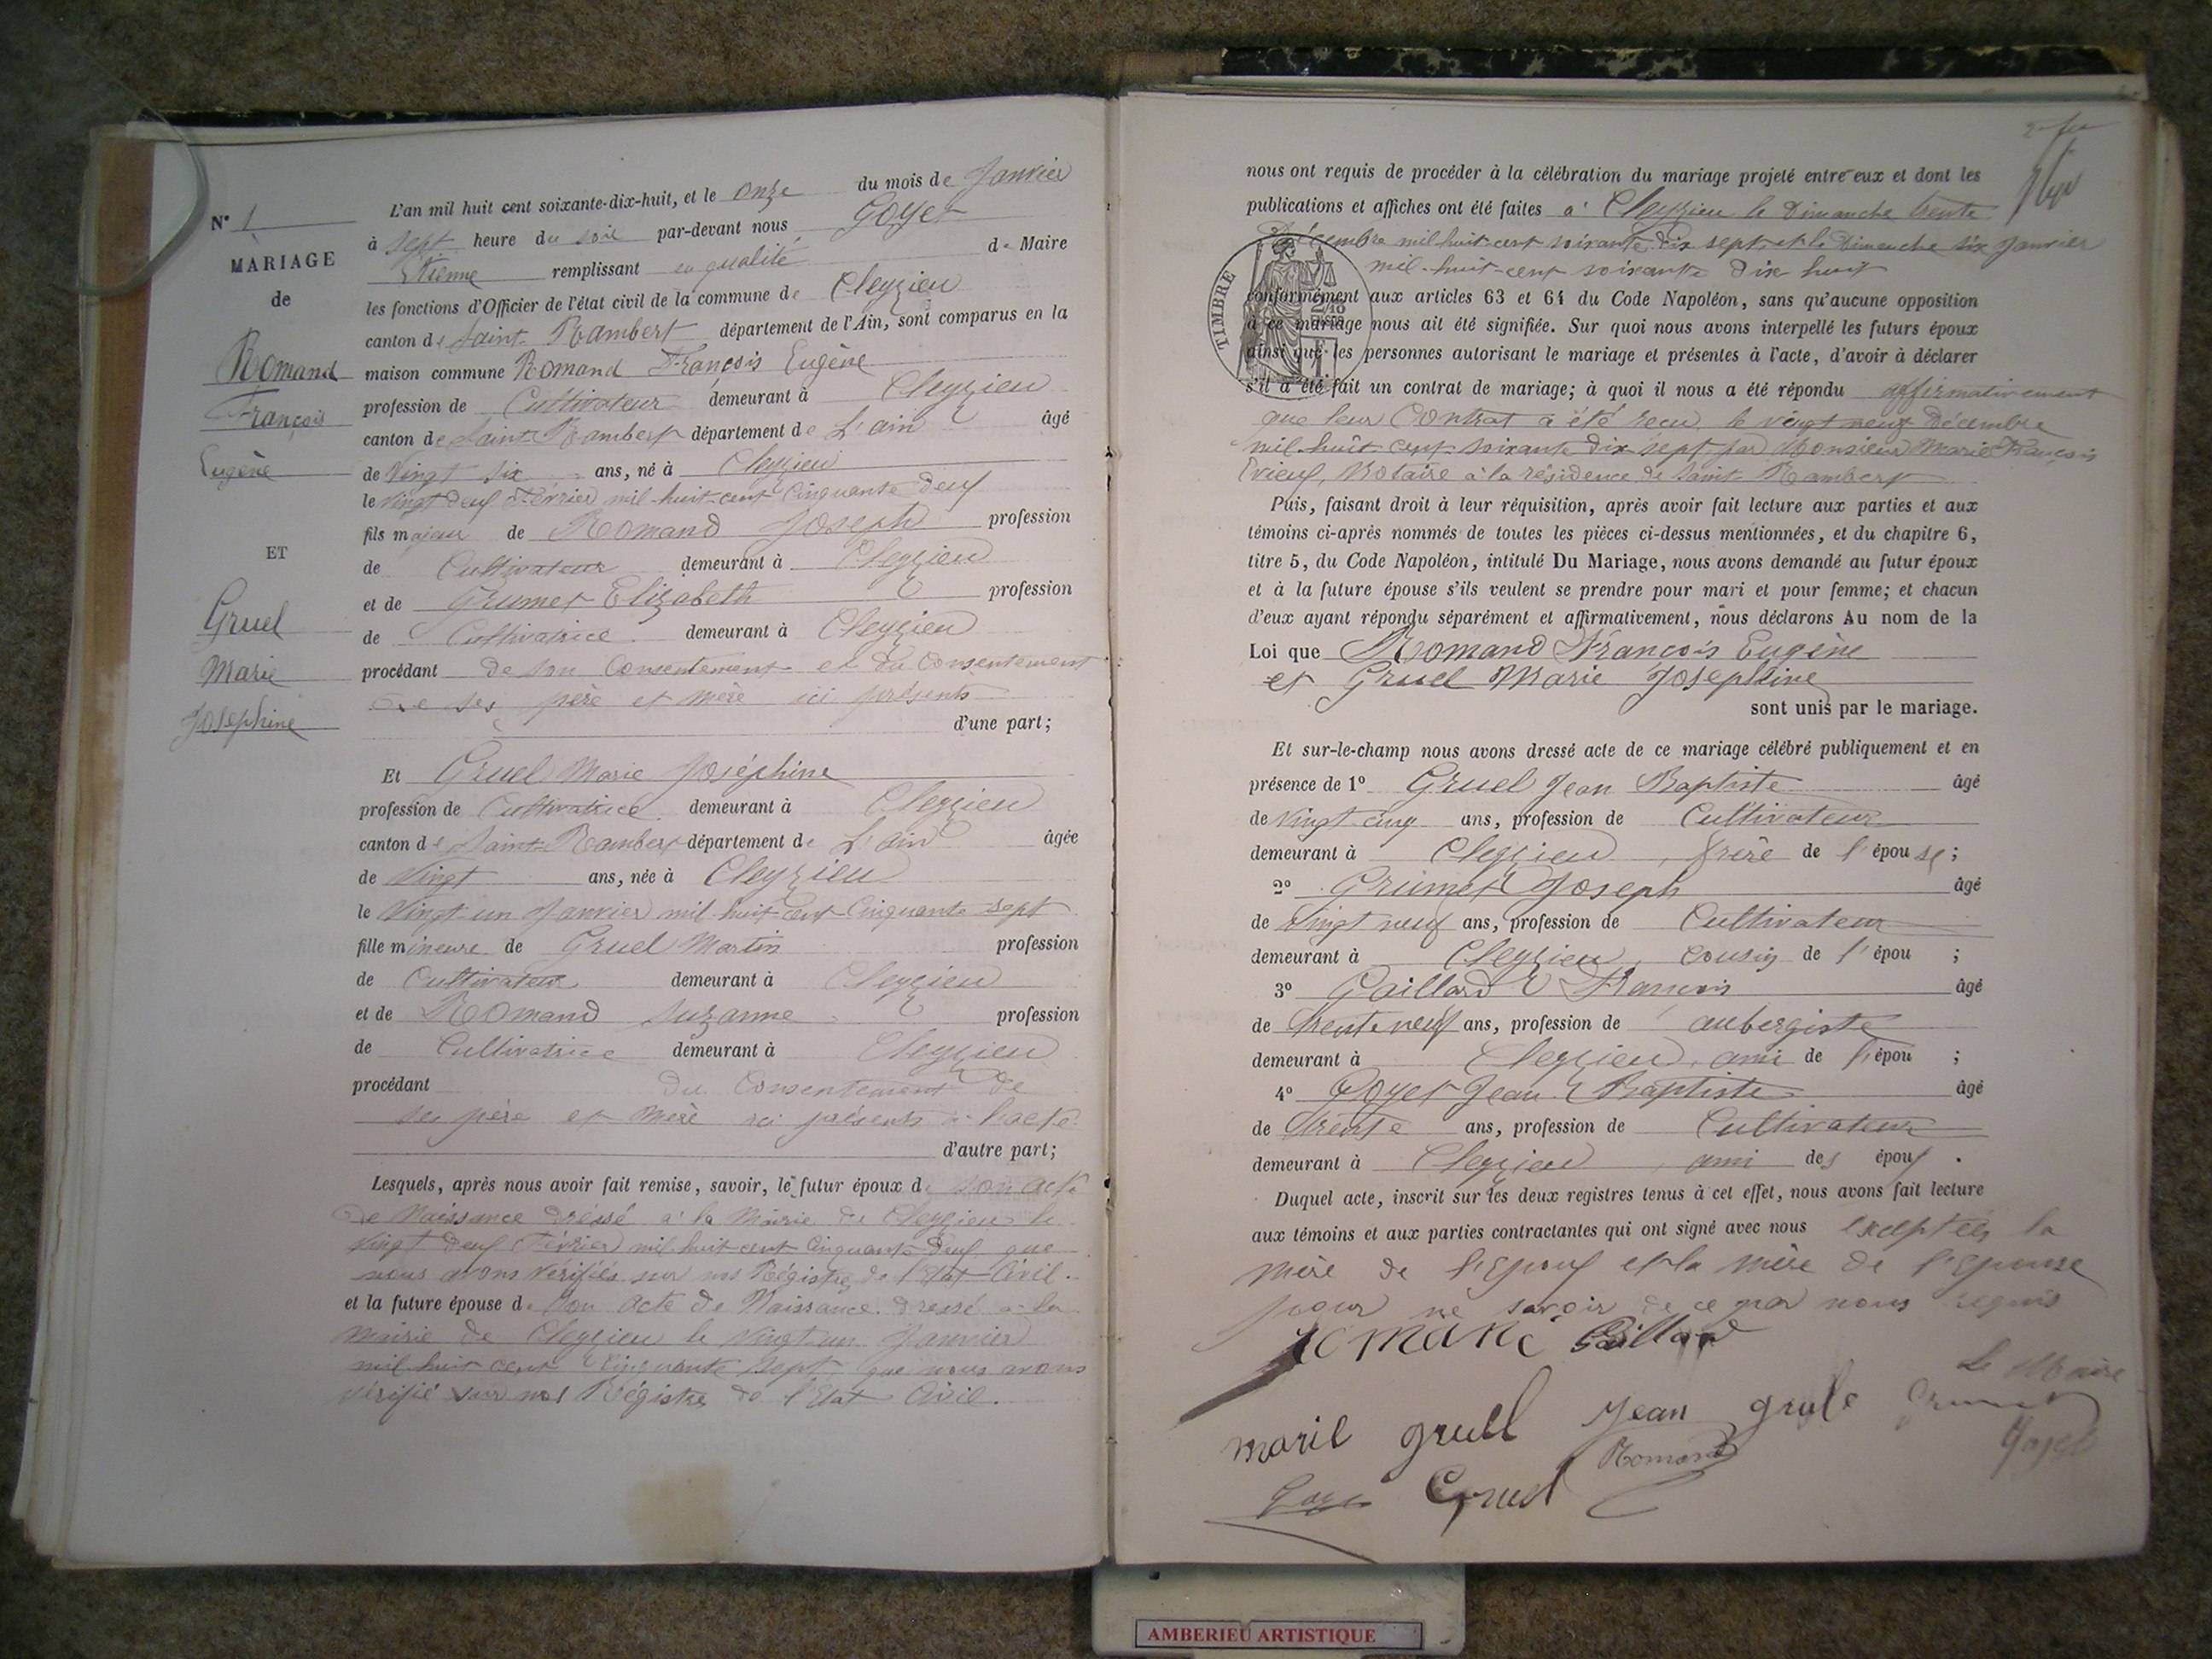 N° 1
MARIAGE
de
Romand
François
Eugène
ET
Gruel
Marie
Josephine
L'an mil huit cent soixante-dix-huit, et le onze du mois de Janvier
à sept heure du soir par-devant nous Goyet
Etienne remplissant en qualité de Maire
les fonctions d'Officier de l'état civil de la commune de Cleyzieu
canton de Saint Rambert département de l'Ain, sont comparus en la
maison commune Romand François Eugène
profession de Cultivateur demeurant à Cleyzieu
canton de Saint Rambert département de L'ain âgé
de Vingt six ans, né à Cleyzieu
le Vingt deux Février mil-huit-cent Cinquante deux
fils majeur de Romand Joseph profession
de Cultivateur demeurant à Cleyzieu
et de Grumet Elizabeth profession
de Cultivatrice demeurant à Cleyzieu
procédant de son Consentement et du Consentement
de ses père et mère ici présents
d'une part;
Et Gruel Marie Joséphine
profession de Cultivatrice demeurant à Cleyzieu
canton de Saint Rambert département de L'ain âgée
de Vingt ans, née à Cleyzieu
le Vingt un Janvier mil huit cent Cinquante sept
fille mineure de Gruel Martin profession
de Cultivateur demeurant à Cleyzieu
et de Romand Suzanne profession
de Cultivatrice demeurant à Cleyzieu
procédant du Consentement de
ses père et mère ici présents à l'acte
d'autre part;
Lesquels, après nous avoir fait remise, savoir, le futur époux de son acte
de Naissance dréssé à la Mairie de Cleyzieu le
Vingt deux Février mil huit cent Cinquante deux que
nous avons Vérifiés sur nos Régistres de l'Etat Civil.
et la future épouse de Son acte de Naissance dressé à la
Mairie de Cleyzieu le Vingt un Janvier
mil huit cent Cinquante sept que nous avons
vérifié sur nos Régistres de l'Etat Civil.
nous ont requis de procéder à la célébration du mariage projeté entre eux et dont les
publications et affiches ont été faites à Cleyzieu le Dimanche trente
Décembre mil huit cent soixante dix sept et le Dimanche six Janvier
mil-huit-cent soixante dix huit
TIMBRE
conformément aux articles 63 et 64 du Code Napoléon, sans qu'aucune opposition
à ce mariage nous ait été signifiée. Sur quoi nous avons interpellé les futurs époux
ainsi que les personnes autorisant le mariage et présentes à l'acte, d'avoir à déclarer
s'il a été fait un contrat de mariage; à quoi il nous a été répondu affirmativement
que leur Contrat a été reçu le vingt neuf Décembre
mil-huit cent soixante dix sept par Monsieur Marie François
Notaire à la résidence de Saint Rambert
Puis, faisant droit à leur réquisition, après avoir fait lecture aux parties et aux
témoins ci-après nommés de toutes les pièces ci-dessus mentionnées, et du chapitre 6,
titre 5, du Code Napoléon, intitulé Du Mariage, nous avons demandé au futur époux
et à la future épouse s'ils veulent se prendre pour mari et pour femme; et chacun
d'eux ayant répondu séparément et affirmativement, nous déclarons Au nom de la
Loi que Romand François Eugène
et Gruel Marie Joséphine
sont unis par le mariage.
Et sur-le-champ nous avons dressé acte de ce mariage célébré publiquement et en
présence de 1° Gruel Jean Baptiste âgé
de Vingt cinq ans, profession de Cultivateur
demeurant à Cleyzieu, frère de l'épouse;
2° Grumet Joseph âgé
de Vingt neuf ans, profession de Cultivateur
demeurant à Cleyzieu, cousin de l'épou ;
3° Gaillard François âgé
de trente neuf ans, profession de aubergiste
demeurant à Cleyzieu, ami de l'épou ;
4° Goyet Jean Baptiste âgé
de trente ans, profession de Cultivateur
demeurant à Cleyzieu, ami des époux.
Duquel acte, inscrit sur les deux registres tenus à cet effet, nous avons fait lecture
aux témoins et aux parties contractantes qui ont signé avec nous exceptées la
mère de l'Epoux et la mère de l'Epouse
pour ne savoir de ce par nous requis
romand Gaillard
Le Maire
marie gruel Jean grule Grumet
Goyet
Romand
Goyet Gruel
AMBERIEU ARTISTIQUE